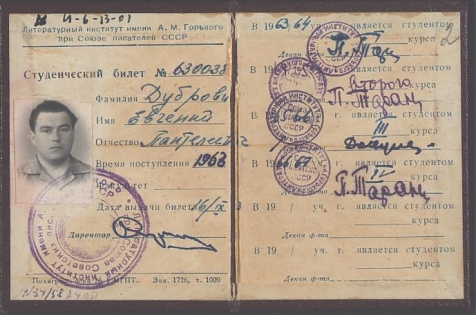 И-6-13-01
Литературный институт имени А. М. Горького
при Союзе писателей СССР
Студенческий билет № 630038
Фамилия Дуброви
Имя Евгений
Отчество Пантелеевич
Время поступления 1963
лет
Дата выдачи билета 16/IX
Директор
Зак. 1726, т. 1000
2
В 1963/64 г. является студентом
курса
Декан П. Таран
является студентом
Второго курса
П. Таран
г. является студентом
III курса
66/67 г. является студентом
IV курса
П. Таран
В 19 / уч. г. является студентом
курса
Декан ф-та
В 19 / уч. г. является студентом
курса
Декан ф-та